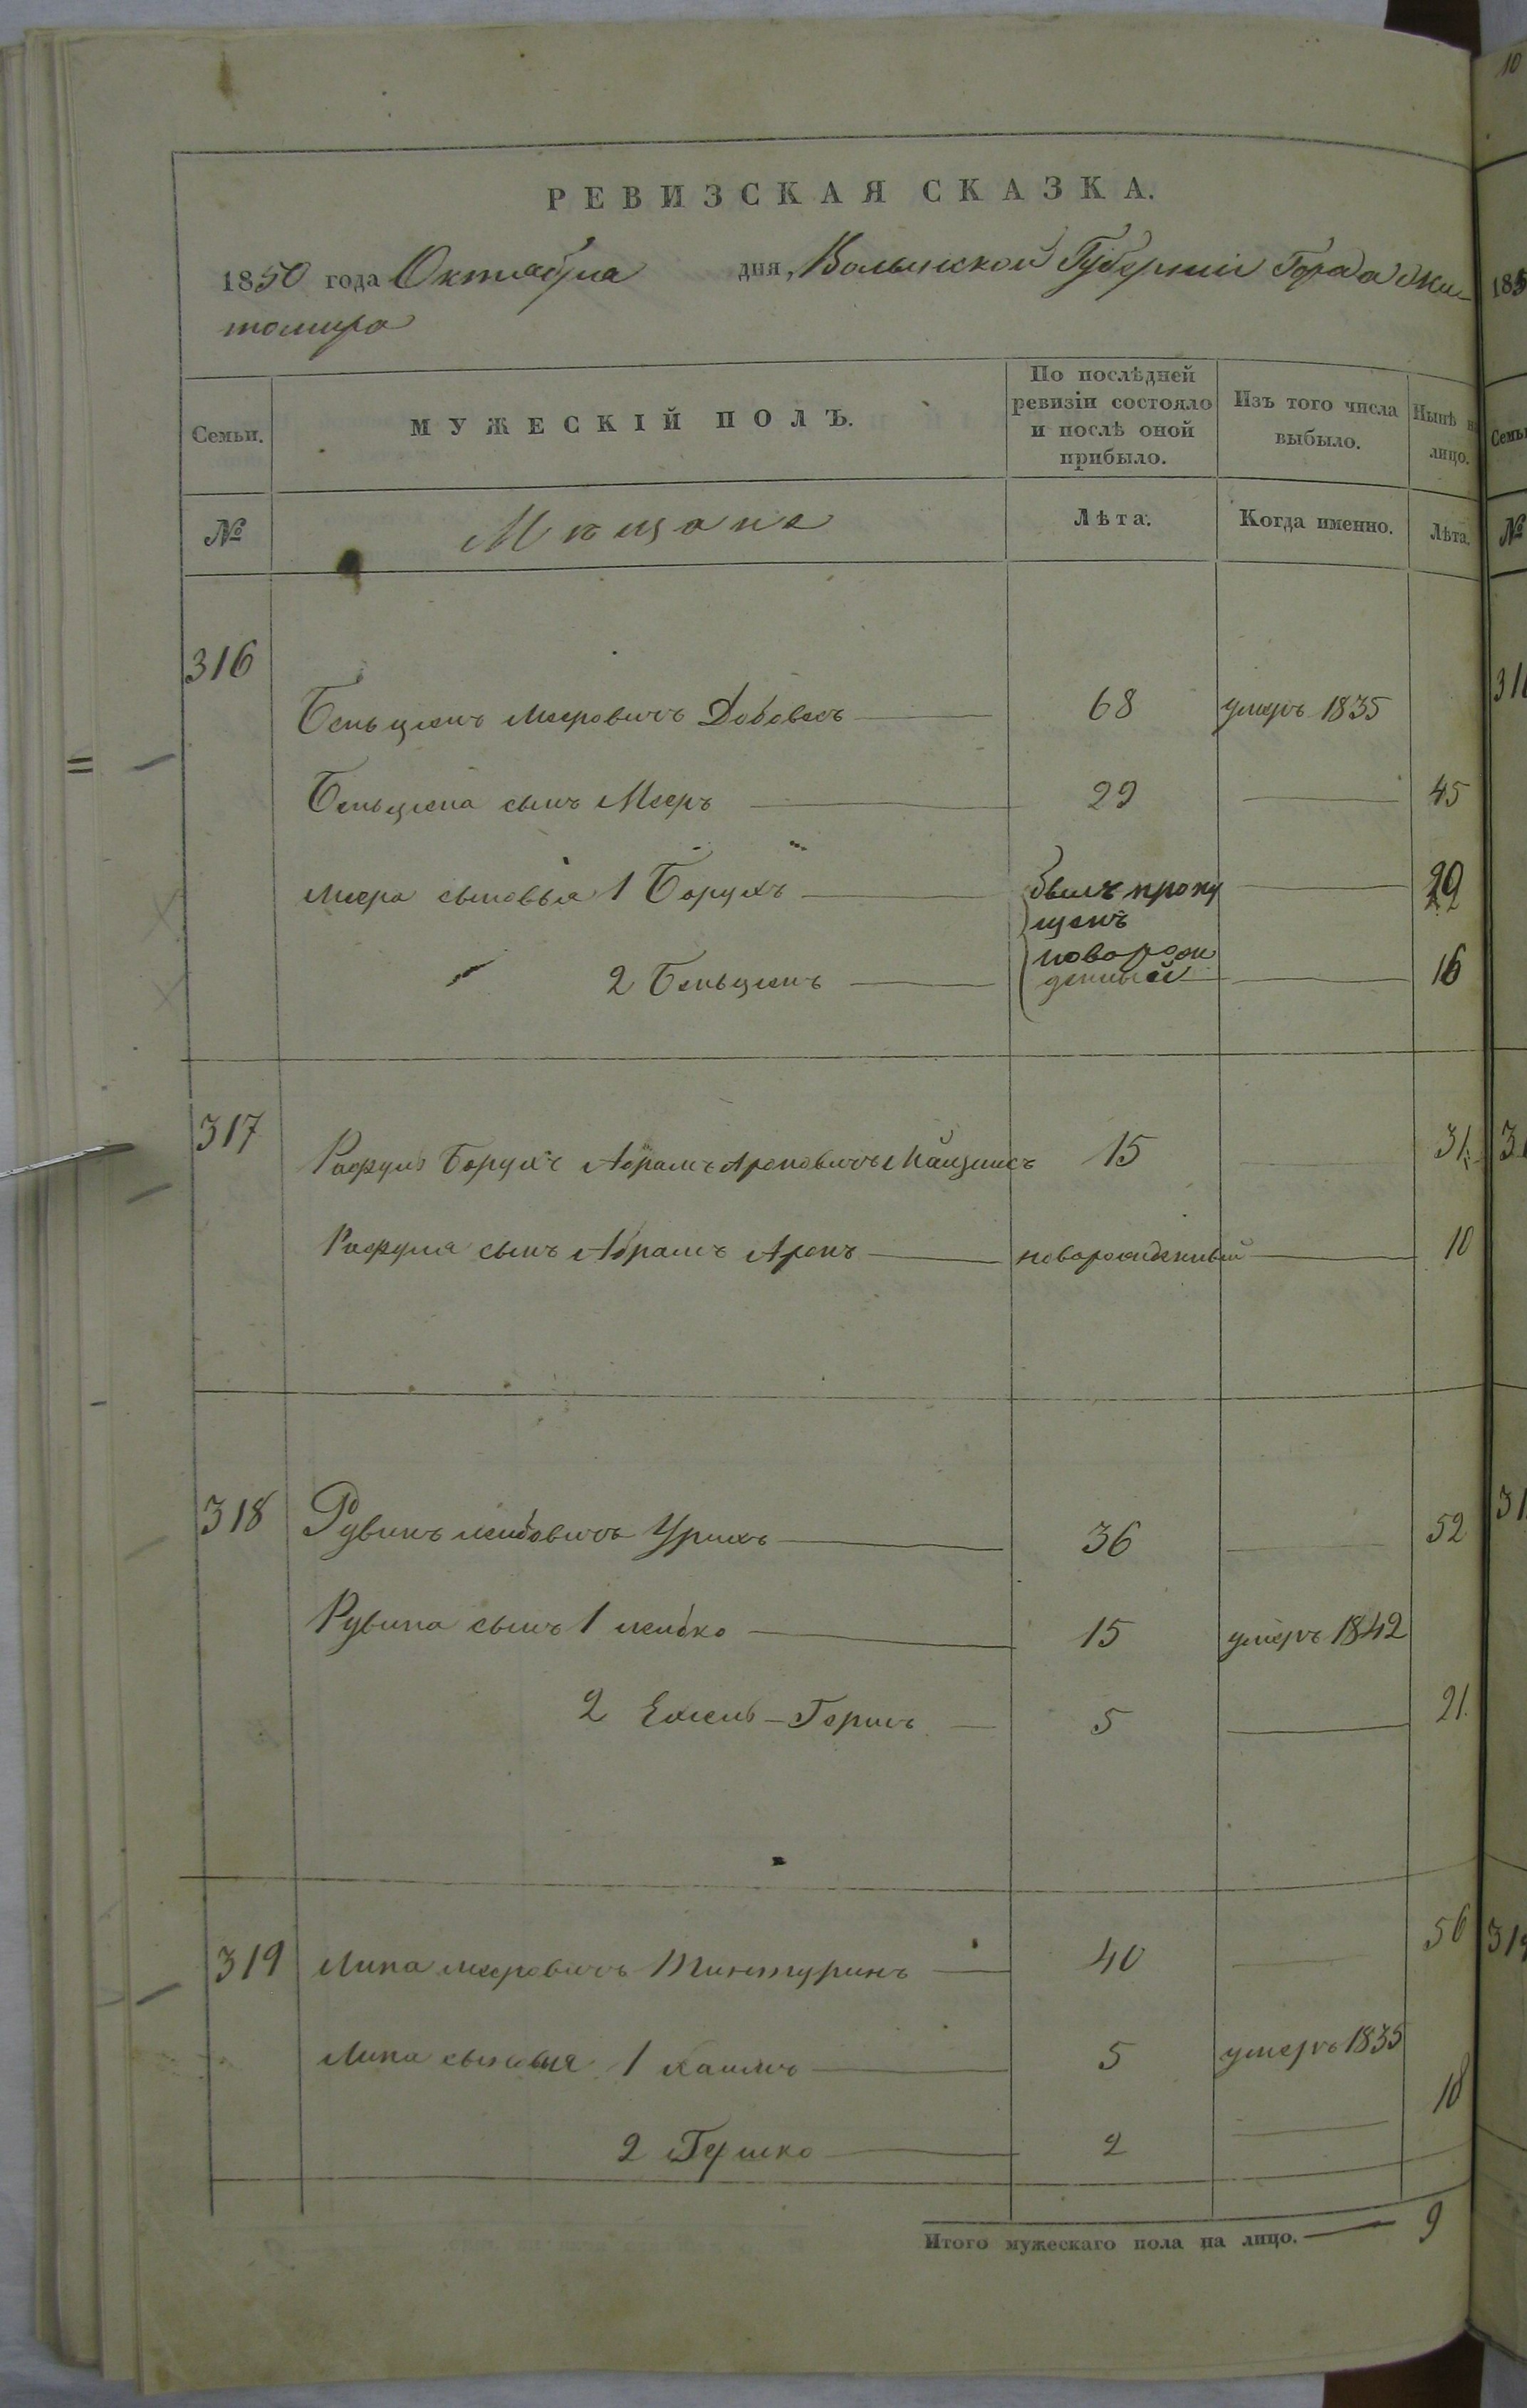 РЕВИЗСКАЯ СКАЗКА.
1850 года Октября дня, Волынской Губерніи Города Жи-
томира
Семьи. МУЖЕСКІЙ ПОЛЪ. По послѣдней ревизіи состояло и послѣ оной прибыло. Изъ того числа выбыло. Нынѣ на лицо.
№ Мѣщане Лѣта. Когда именно. Лѣта.
316
Беньціонъ Мееровичъ 68 умеръ 1835
Беньціона сынъ Мееръ 29 45
Меера сыновья 1 Борухъ былъ пропу 29
щенъ
2 Беньціонъ новорож 16
денный
317
Рафулъ Борухъ Абрамъ Ароновичъ 15 31
Рафула сынъ Абрамъ Аронъ новорожденный 10
318 Рувинъ Лейбовичъ 36 52
Рувина сынъ 1 Лейбко 15 умеръ 1842
2 5 21
319 Липа Мееровичъ Тинтуринъ 40 56
Липа сыновья 1 Хаимъ 5 умеръ 1835
2 Гершко 2 18
Итого мужескаго пола на лицо. 9